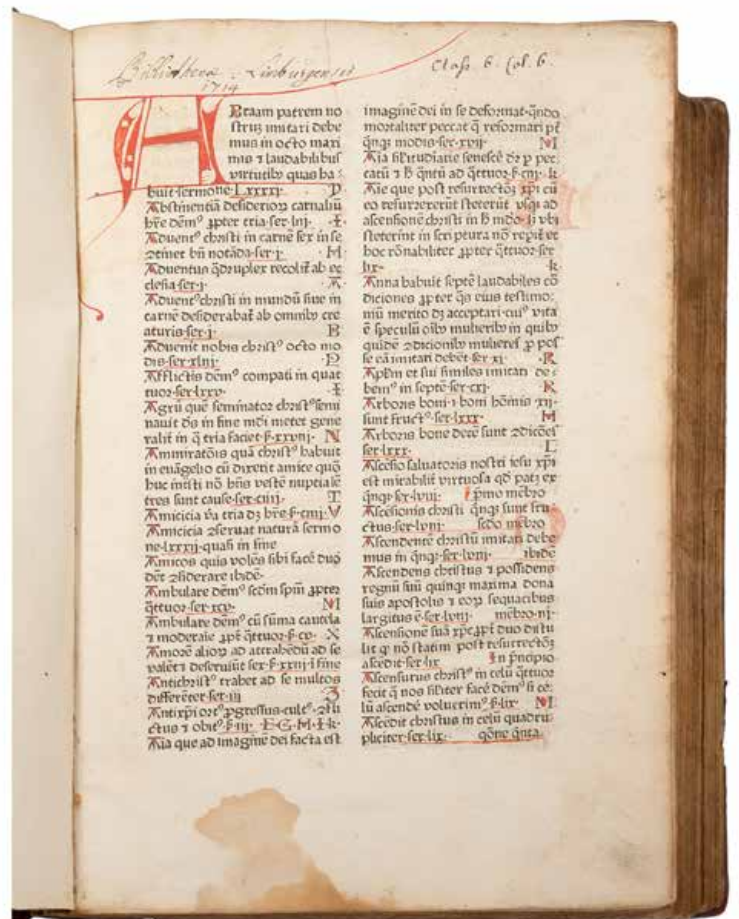 Bibliotheca Limburgensis
1714
Class. 6. Col. 6.
Abraam patrem no
strū imitari debe
mus in octo maxi
mis ⁊ laudabilibus
virtutibꝰ quas ha⸗
buit sermone Lxxxxj· P
Abstinentia desideriorꝝ carnaliū
hr̄e dēmꝰ ꝓpter tria·ser·lnj· I·
Aduentꝰ christi in carnē sex in se
ꝯtinet bn̄ notāda·ser·j· M
Aduentus q̄druplex recolit̄ ab ec
clesia·ser·j· A
Aduentꝰ christi in mundū siue in
carnē desiderabat̄ ab omnibꝰ cre
aturis·ser·j· B
Aduenit nobis christꝰ octo mo
dis·ser·xlnj· D
Afflictis dēmꝰ compati in quat
tuor·ser·lxxv· I
Agrū quē seminator christꝰ semi
nauit
in fine mdi metet gene
ralit̄ in q̄ tria faciet· N
Ammiratōis quā christꝰ habuit
in euāgelio cū dixerit amice quō
huc intrasti nō hn̄s vestē nuptialē
tres sunt cause·ser·ciiij· T
Amicicia v̄a tria dꝫ hr̄e· V
Amicicia ꝯseruat naturā sermo
ne·lxxxij·quasi in fine
Amicos quis volēs sibi facē duo
dēt ꝯsiderare ibidē·
Ambulare dēmꝰ scdm spm̄ ꝓpter
q̄ttuor·ser·xcv· M
Ambulare dēmꝰ cū sūma cautela
⁊ moderatē ꝓpt̄ q̄ttuor· X
Amorē aliorꝝ ad attrahēdū ad se
valēt ⁊ deseruiūt sex· ī fine
Antichristꝰ trahet ad se multos
differēter·ser·iij Z
Antixp̄i ortꝰ ꝓgressus·cultꝰ·
ctus ⁊ obitꝰ· E·G·M·I·k·
Aīa que ad imaginē dei facta est
imaginē dei in se deformat·qn̄do
mortaliter peccat q̄ reformari pt̄
q̄nqꝫ modis·ser·xvij· M
Aīa sil̄itudiarie senescē dr̄ p pec
catū ⁊ ħ q̄ntū ad q̄ttuor· k
Aīe que post resurrectōꝫ xp̄i cū
eo resurrexerūt steterūt vsqꝫ ad
ascensionē christi in ħ mdo· vbi
steterint in scriptura nō repit̄ et
hoc rōnabiliter ꝓpter q̄ttuor·ser
lix· k
Anna habuit septē laudabiles cō
diciones ꝓpter q̄s eius testimo⸗
niū merito dꝫ acceptari·cuiꝰ vita
ē speculū oībꝰ mulieribꝰ in quibꝰ
quidē ꝯdicionibꝰ mulieres
se eā imitari debēt·ser·xj· R
Aplm̄ et sui similes imitari de⸗
bemꝰ in septē·ser·cxj· K
Arboris boni·⁊ boni hōinis·xij·
sunt fructꝰ·ser·lxxx· M
Arboris bone decē sunt ꝯdicōes
ser·lxxx· L
Ascēsio saluatoris nostri iesu xp̄i
est mirabilit̄ virtuosa qd patꝫ ex
q̄nqꝫ·ser·lviij· pmo mēbro
Ascēsionis christi q̄nqꝫ sunt fru
ctus·ser·lvnj· scdo mēbro
Ascendentē christū imitari debe
mus in q̄nqꝫ·ser·lvnj· ibidē
Ascendens christus ⁊ possidens
regnū suū quinqꝫ maxima dona
suis apostolis ⁊ eorꝝ sequacibus
largitus ē·ser·lvnj· mēbro·nj·
Ascensionē suā xpc̄ ꝓpt̄ duo distu
lit ꝙ nō statim post resurrectōꝫ
ascēdit·ser·lix In pn̄cipio
Ascensurus christꝰ in celū q̄ttuor
fecit q̄ nos sil̄iter facē dēmꝰ si ce⸗
lū ascendē voluerimꝰ·lix· M
Ascēdit christus in celū quadru
pliciter·ser·lix· qōne q̄nta·